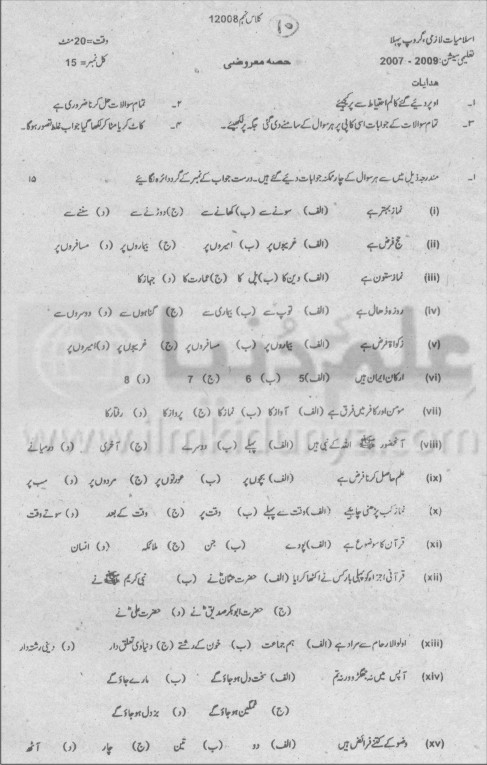 کلاس نہم 12008
۱۵
اسلامیات لازمی، گروپ پہلا
وقت = 20 منٹ
تعلیمی سیشن: 2009 - 2007
حصہ معروضی
کل نمبر = 15
ھدایات
۱۔ اوپر دیئے گئے کالم احتیاط سے پر کیجئے
۲۔ تمام سوالات حل کرنا ضروری ہے
۳۔ تمام سوالات کے جوابات اسی کاپی پر ہر سوال کے سامنے دی گئی جگہ پر لکھیئے۔
۴۔ کاٹ کر یا مٹا کر لکھا گیا جواب غلط تصور ہوگا۔
۱۔ مندرجہ ذیل میں سے ہر سوال کے چار ممکنہ جوابات دیئے گئے ہیں۔ درست جواب کے نمبر کے گرد دائرہ لگایئے ۱۵
(i) نماز بہتر ہے (الف) سونے سے (ب) کھانے سے (ج) دوڑنے سے (د) سننے سے
(ii) حج فرض ہے (الف) غریبوں پر (ب) امیروں پر (ج) بیماروں پر (د) مسافروں پر
(iii) نماز ستون ہے (الف) دین کا (ب) پل کا (ج) عمارت کا (د) جہاز کا
(iv) روزہ ڈھال ہے (الف) توپ سے (ب) بیماری سے (ج) گناہوں سے (د) دوسروں سے
(v) زکواۃ فرض ہے (الف) بیماروں پر (ب) مسافروں پر (ج) غریبوں پر (د) امیروں پر
(vi) ارکان ایمان ہیں (الف) 5 (ب) 6 (ج) 7 (د) 8
(vii) مومن اور کافر میں فرق ہے (الف) آواز کا (ب) نماز کا (ج) پرواز کا (د) رفتار کا
(viii) آنحضور ﷺ اللہ کے نبی ہیں (الف) پہلے (ب) دوسرے (ج) آخری (د) درمیانے
(ix) علم حاصل کرنا فرض ہے (الف) بچوں پر (ب) عورتوں پر (ج) مردوں پر (د) سب پر
(x) نماز کب پڑھنی چاہیے (الف) وقت سے پہلے (ب) وقت پر (ج) وقت کے بعد (د) سوتے وقت
(xi) قرآن کا موضوع ہے (الف) پودے (ب) جن (ج) ملائکہ (د) انسان
(xii) قرآنی اجزاء کو پہلی بار کس نے اکٹھا کرایا (الف) حضرت عثمانؓ نے (ب) نبی کریم ﷺ نے
(ج) حضرت ابوبکر صدیقؓ نے (د) حضرت علیؓ نے
(xiii) اولوالارحام سے مراد ہے (الف) ہم جماعت (ب) خون کے رشتے (ج) دنیاوی تعلق دار (د) دینی رشتہ دار
(xiv) آپس میں نہ جھگڑو ورنہ تم (الف) سخت دل ہو جاؤ گے (ب) مارے جاؤ گے
(ج) غمگین ہو جاؤ گے (د) بزدل ہو جاؤ گے
(xv) وضو کے کتنے فرائض ہیں (الف) دو (ب) تین (ج) چار (د) آٹھ
علم کی دنیا
www.ilmkidunya.com